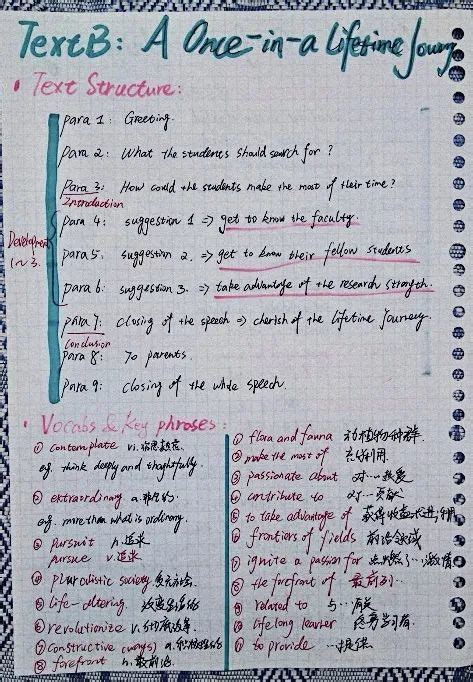 Text B: A Once-in-a Lifetime Journey
Text Structure:
para 1: Greeting.
para 2: What the students should search for?
Para 3: How could the students make the most of their time?
Introduction
para 4: suggestion 1 => get to know the faculty.
Development
1~3.
para 5: suggestion 2. => get to know their fellow students
Para 6: suggestion 3. => take advantage of the research strength.
para 7: closing of the speech => cherish of the lifetime journey.
Conclusion
Para 8: To parents.
Para 9: closing of the whole speech.
Vocabs & key phrases:
① contemplate vi.
eg. think deeply and thoughtfully.
② extraordinary a.非凡的
eg. more than what is ordinary.
③ pursuit n.追求
pursue v.追求
④ pluralistic society
⑤ life-altering 改变生活的
⑥ revolutionize v.
⑦ constructive (ways) a.
⑧ forefront n.最前沿
① flora and fauna 动植物种群.
② make the most of 充分利用
③ passionate about 对…热爱
④ contribute to 对…贡献
⑤ to take advantage of
⑥ frontiers of fields 前沿领域
⑦ ignite a passion for 点燃了…激情
⑧ the forefront of 最前列…
⑨ related to 与…有关
⑩ lifelong learner 终身学习者
⑪ to provide …提供